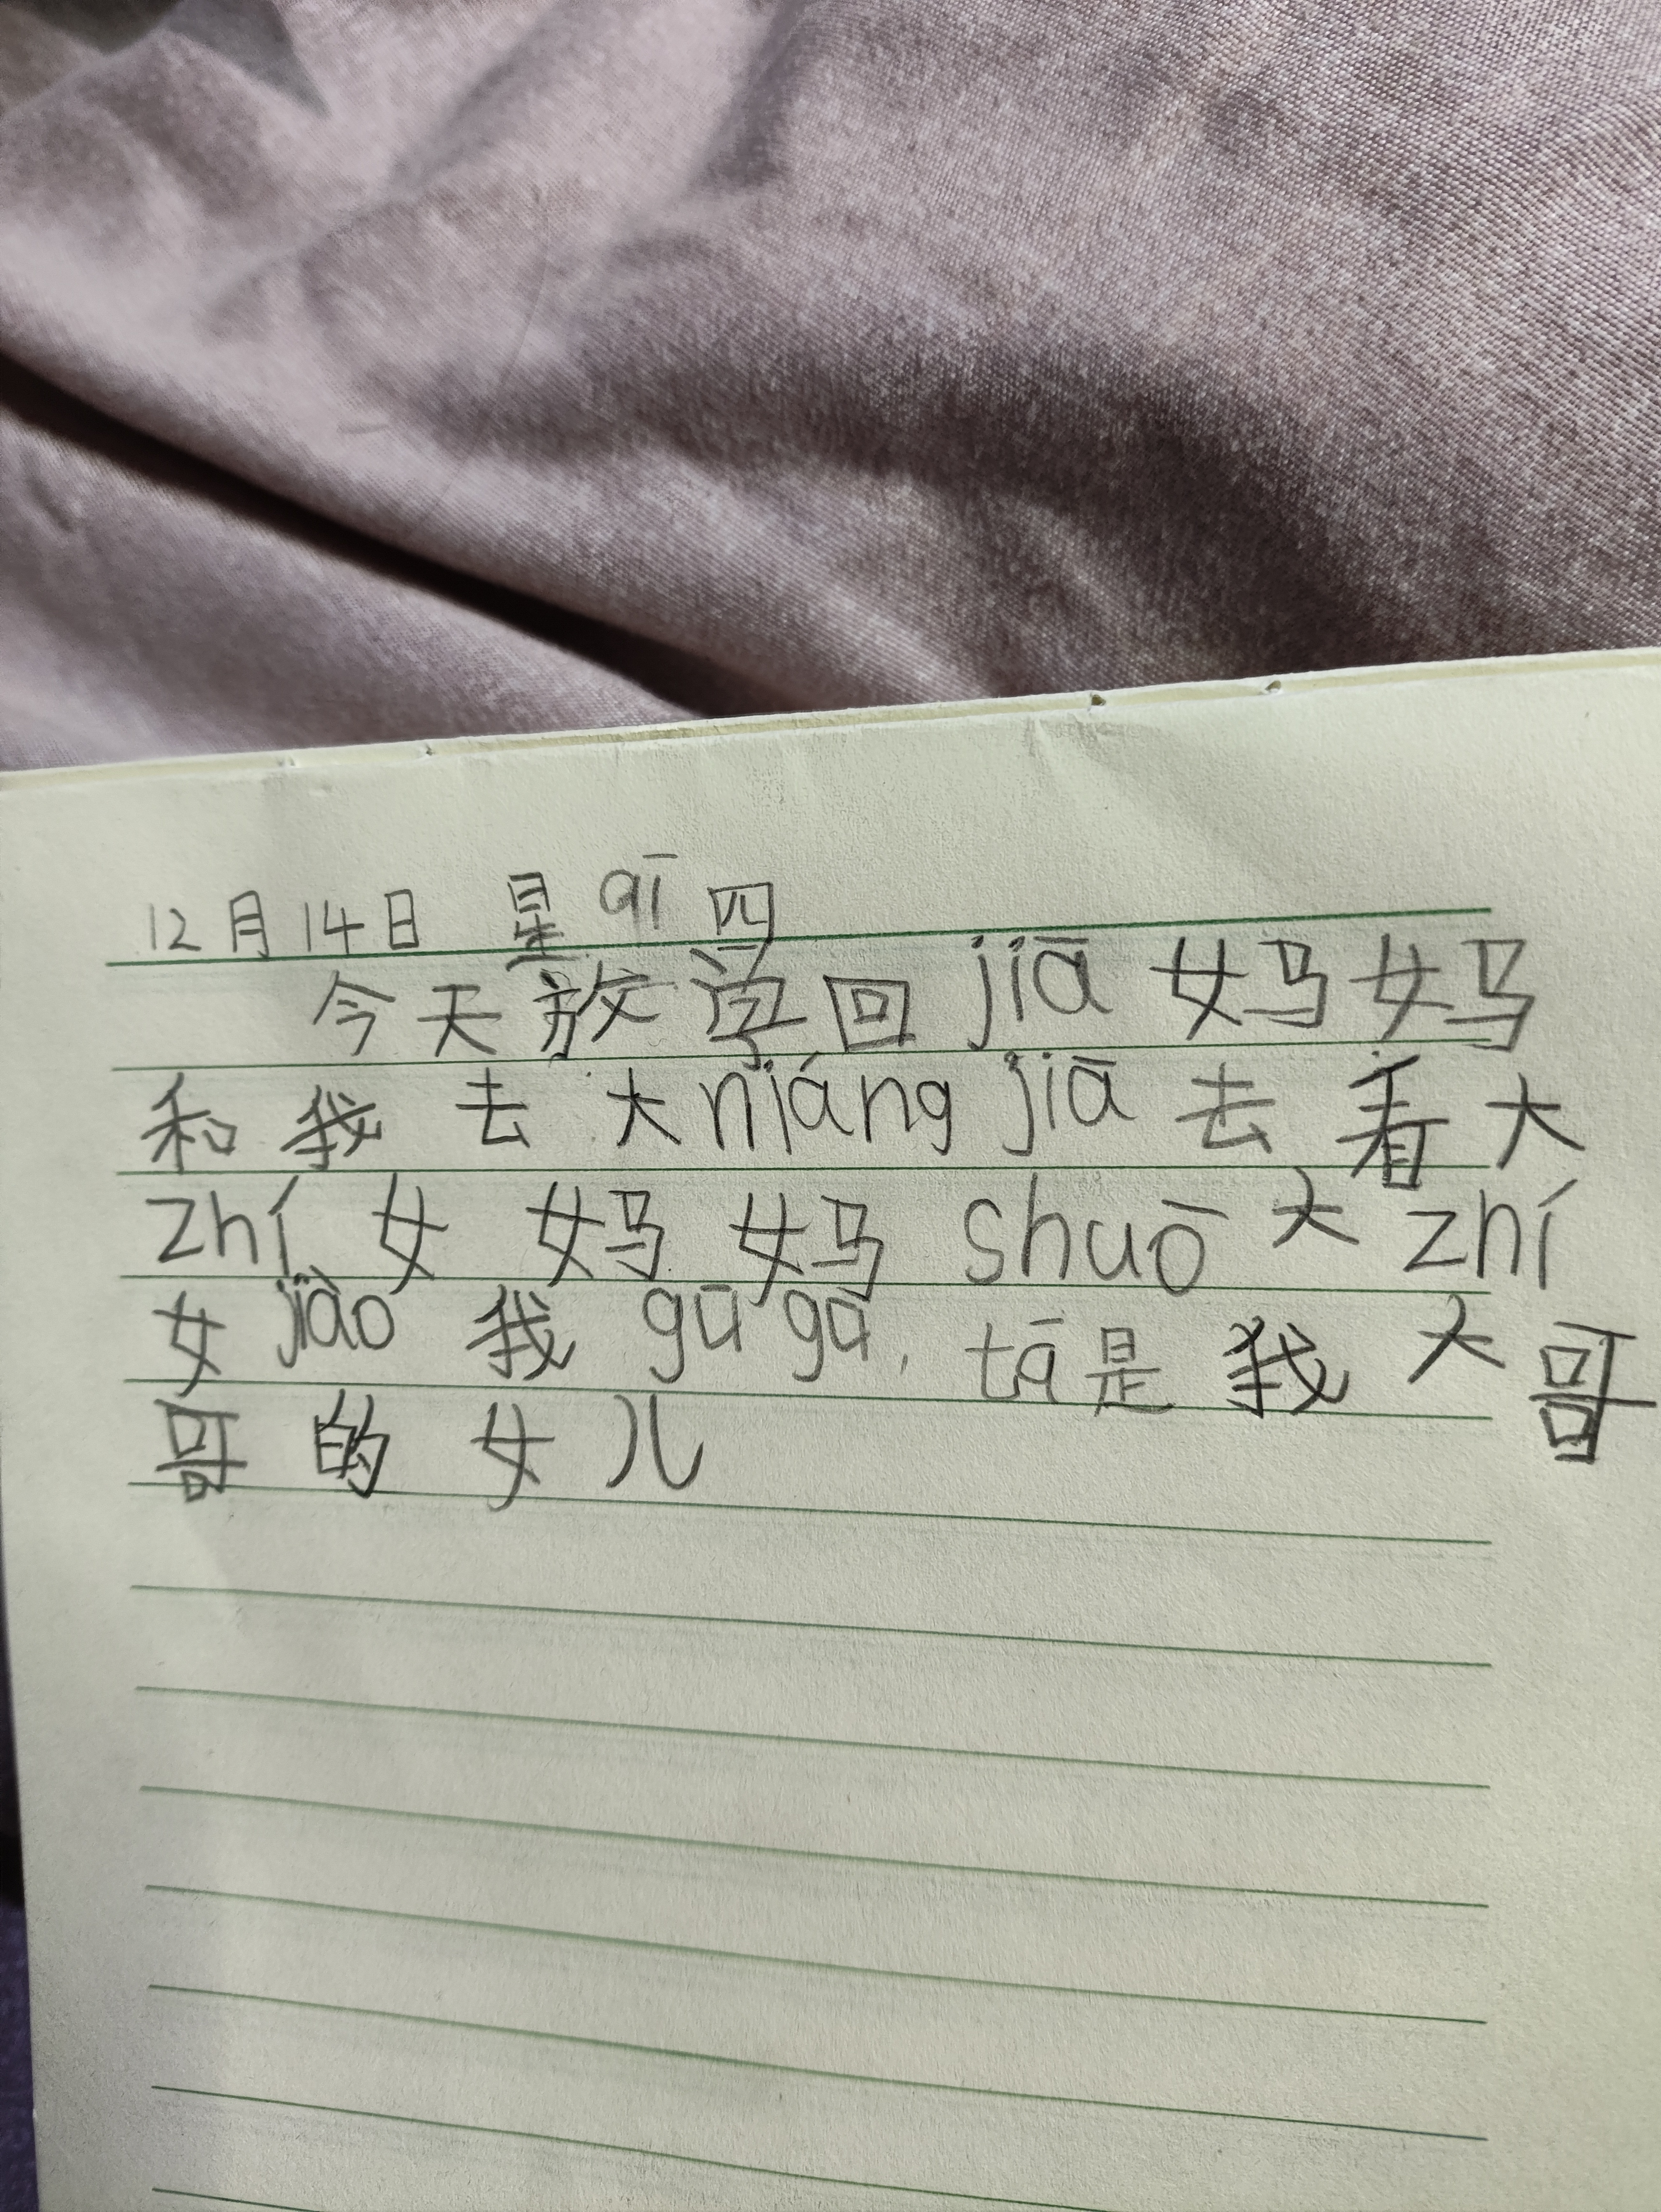 12月14日 星 qī 四
今天放学回 jiā 妈妈
和我去大niáng jiā 去看大
zhí 女 妈妈 shuō 大 zhí
女 jiào 我 gū gū, tā 是我大哥
哥的女儿